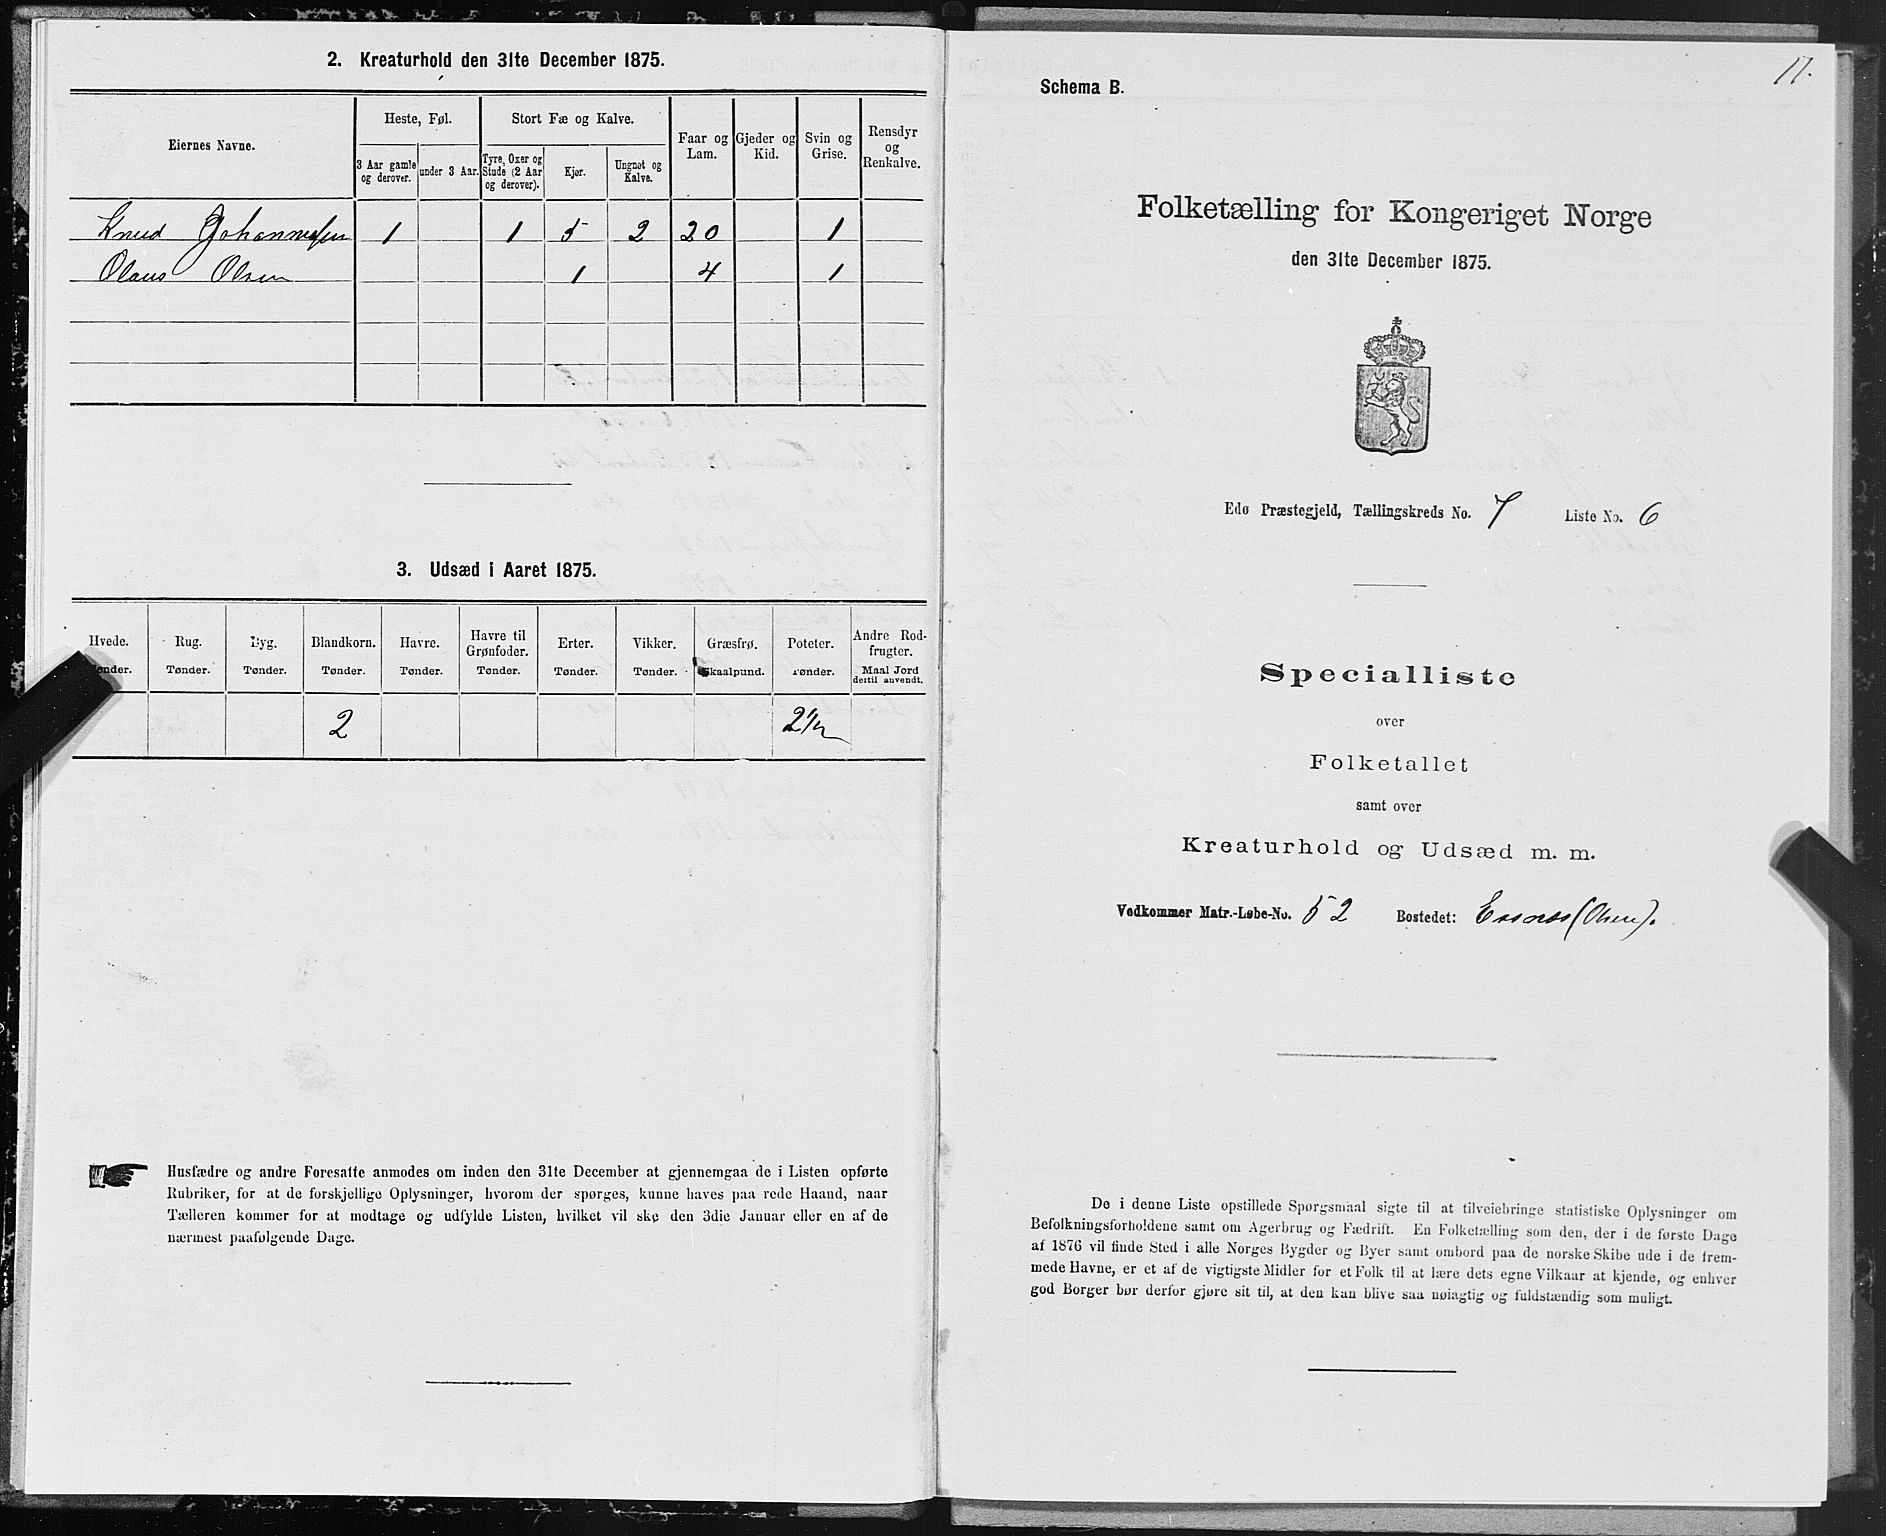 2. Kreaturhold den 31te December 1875.
Eiernes Navne.
Heste, Føl.
Stort Fæ og Kalve.
Faar og Lam.
Gjeder og Kid.
Svin og Grise.
Rensdyr og Renkalve.
3 Aar gamle og derover.
under 3 Aar.
Tyre, Oxer og Stude (2 Aar og derover).
Kjør.
Ungnøt og Kalve.
Knud Johannesen 1 1 5 2 20 1
Olaus Olsen 1 4 1
3. Udsæd i Aaret 1875.
Hvede. Rug. Byg. Blandkorn. Havre. Havre til Grønfoder. Erter. Vikker. Græsfrø. Poteter. Andre Rodfrugter.
Tønder. Tønder. Tønder. Tønder. Tønder. Tønder. Tønder. Tønder. Skaalpund. Tønder. Maal Jord dertil anvendt.
2 2 1/2
Husfædre og andre Foresatte anmodes om inden den 31te December at gjennemgaa de i Listen opførte
Rubriker, for at de forskjellige Oplysninger, hvorom der spørges, kunne haves paa rede Haand, naar
Tælleren kommer for at modtage og udfylde Listen, hvilket vil ske den 3die Januar eller en af de
nærmest paafølgende Dage.
17.
Schema B.
Folketælling for Kongeriget Norge
den 31te December 1875.
Edø Præstegjeld, Tællingskreds No. 7 Liste No. 6
Specialliste
over
Folketallet
samt over
Kreaturhold og Udsæd m. m.
Vedkommer Matr.-Løbe-No. 52 Bostedet: Essnes (Olsen).
De i denne Liste opstillede Spørgsmaal sigte til at tilveiebringe statistiske Oplysninger om
Befolkningsforholdene samt om Agerbrug og Fædrift. En Folketælling som den, der i de første Dage
af 1876 vil finde Sted i alle Norges Bygder og Byer samt ombord paa de norske Skibe ude i de frem-
mede Havne, er et af de vigtigste Midler for et Folk til at lære dets egne Vilkaar at kjende, og enhver
god Borger bør derfor gjøre sit til, at den kan blive saa nøiagtig og fuldstændig som muligt.